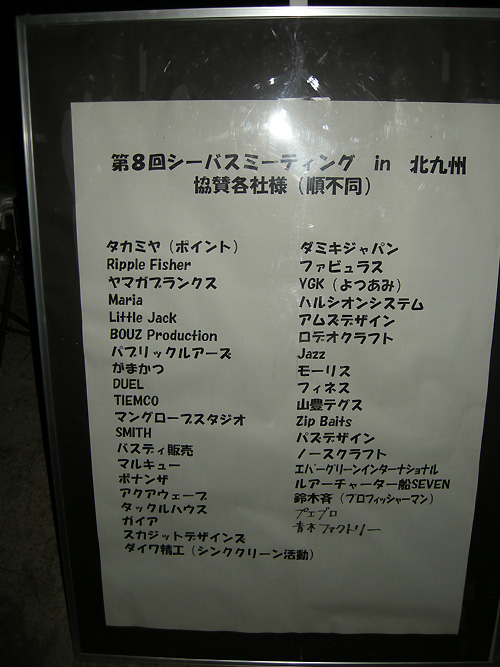 第8回シーバスミーティング in 北九州
協賛各社様(順不同)
タカミヤ(ポイント)
Ripple Fisher
ヤマガブランクス
Maria
Little Jack
BOUZ Production
パブリックルアーズ
がまかつ
DUEL
TIEMCO
マングローブスタジオ
SMITH
バスディ販売
マルキユー
ボナンザ
アクアウェーブ
タックルハウス
ガイア
スカジットデザインズ
ダイワ精工(シンククリーン活動)
ダミキジャパン
ファビュラス
YGK(よつあみ)
ハルシオンシステム
アムズデザイン
ロデオクラフト
Jazz
モーリス
フィネス
山豊テグス
Zip Baits
パズデザイン
ノースクラフト
エバーグリーンインターナショナル
ルアーチャーター船SEVEN
鈴木斉(プロフィッシャーマン)
プエブロ
青木ファクトリー